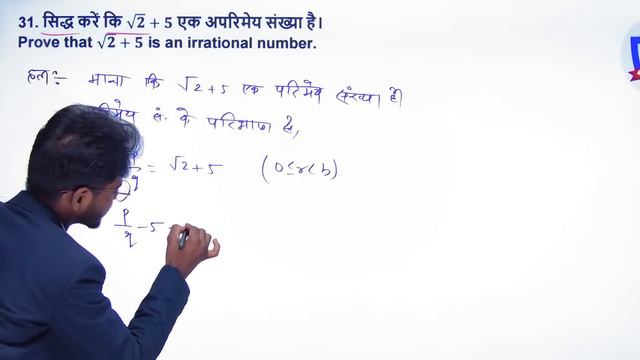 31. सिद्ध करें कि √2 + 5 एक अपरिमेय संख्या है।
Prove that √2 + 5 is an irrational number.
हल :- माना कि √2+5 एक परिमेय संख्या है।
सं. के परिभाषा से,
q = √2+5 (0≤r<b)
p/q - 5